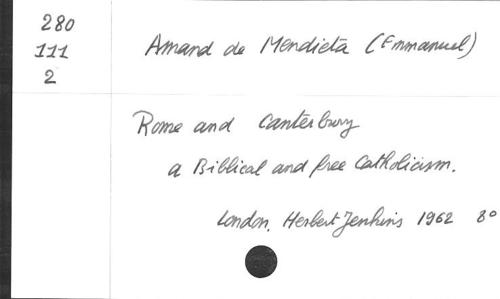 280
111
2
Amand de Mendieta (Emmanuel)
Rome and Canterbury
a Biblical and free Catholicism.
London, Herbert Jenkins 1962 8°